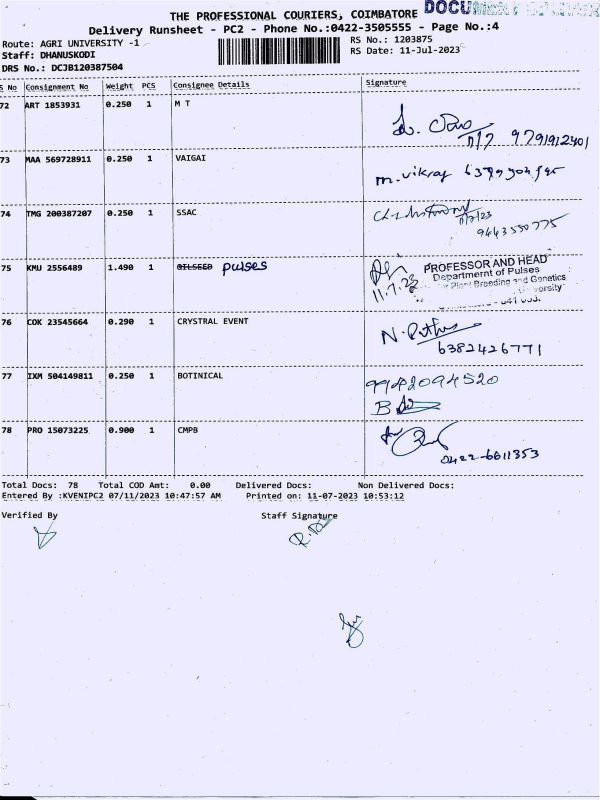 THE PROFESSIONAL COURIERS, COIMBATORE
Delivery Runsheet - PC2 - Phone No.:0422-3505555 - Page No.:4
Route: AGRI UNIVERSITY -1
RS No.: 1203875
Staff: DHANUSKODI
RS Date: 11-Jul-2023
DRS No.: DCJB120387504
S No Consignment No Weight PCS Consignee Details Signature
72 ART 1853931 0.250 1 M T
11/7 9791912401
73 MAA 569728911 0.250 1 VAIGAI
m.vikraj
74 TMG 200387207 0.250 1 SSAC
11/7/23
9443550775
75 KMU 2556489 1.490 1 OILSEED pulses
11.7.23
PROFESSOR AND HEAD
Department of Pulses
Plant Breeding and Genetics
76 COK 23545664 0.290 1 CRYSTRAL EVENT
6382426771
77 IXM 504149811 0.250 1 BOTINICAL
9942094520
78 PRO 15073225 0.900 1 CMPB
0422-6611353
Total Docs: 78 Total COD Amt: 0.00 Delivered Docs: Non Delivered Docs:
Entered By :KVENIPC2 07/11/2023 10:47:57 AM Printed on: 11-07-2023 10:53:12
Verified By Staff Signature